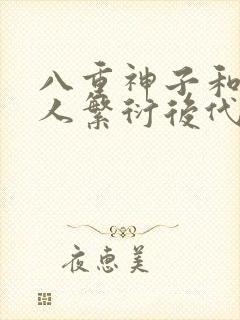 八重神子和
人繁衍後代
夜惠美